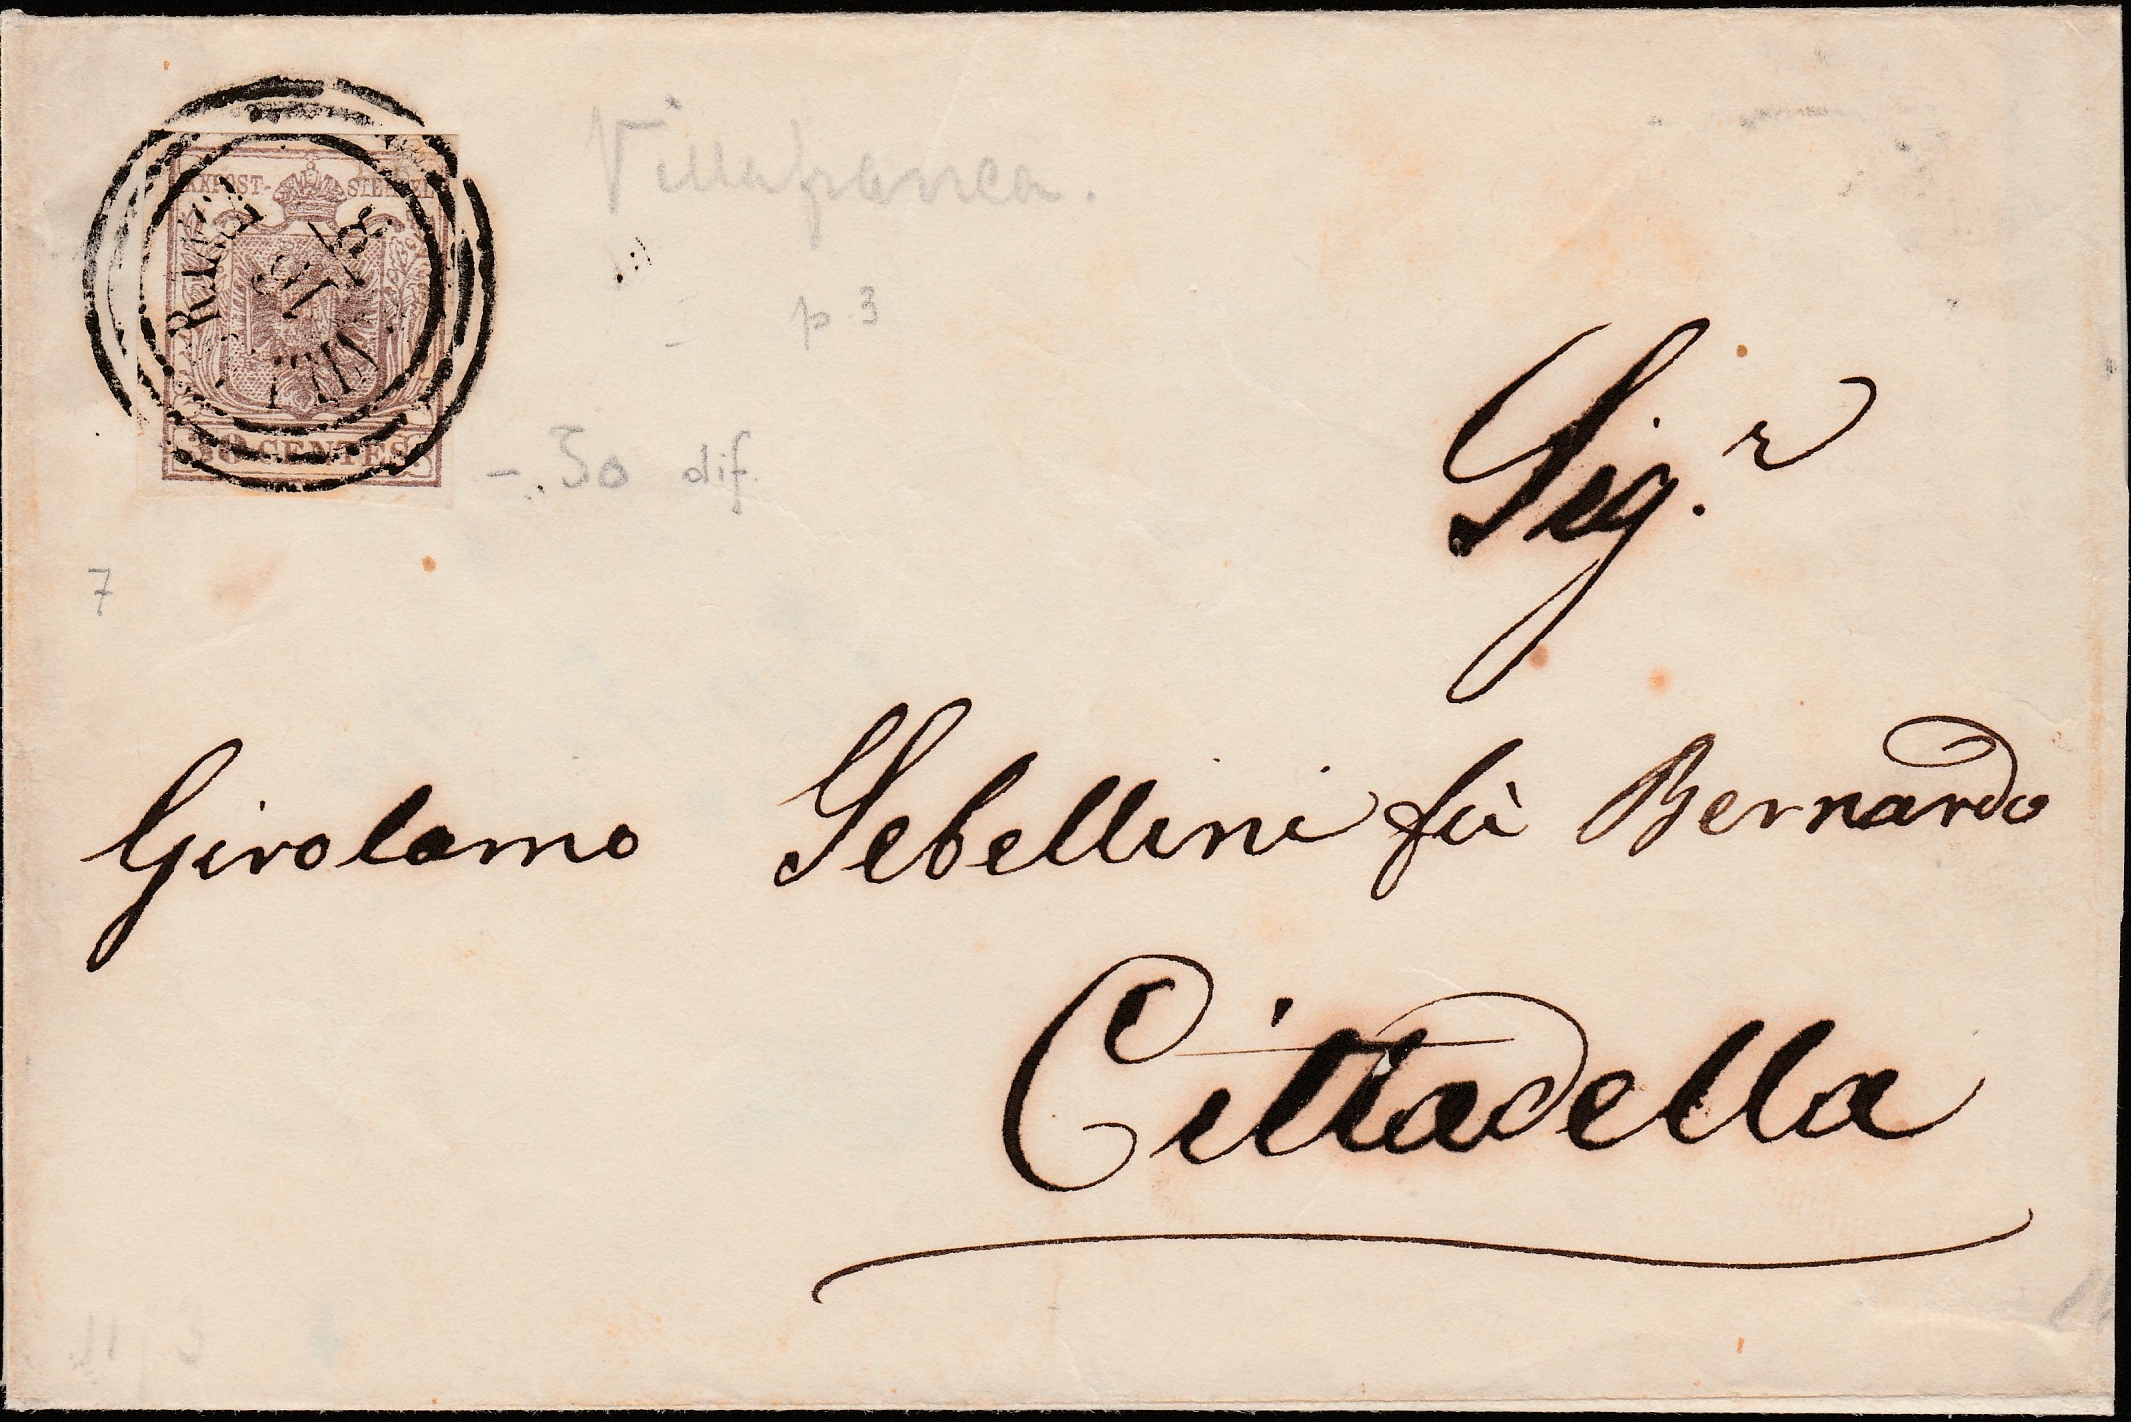 KKPOST-STEMPEL
30 CENTES.
Villafranca.
p. 3
30 dif.
7
Sig.r
Girolamo Sebellini fù Bernardo
Cittadella